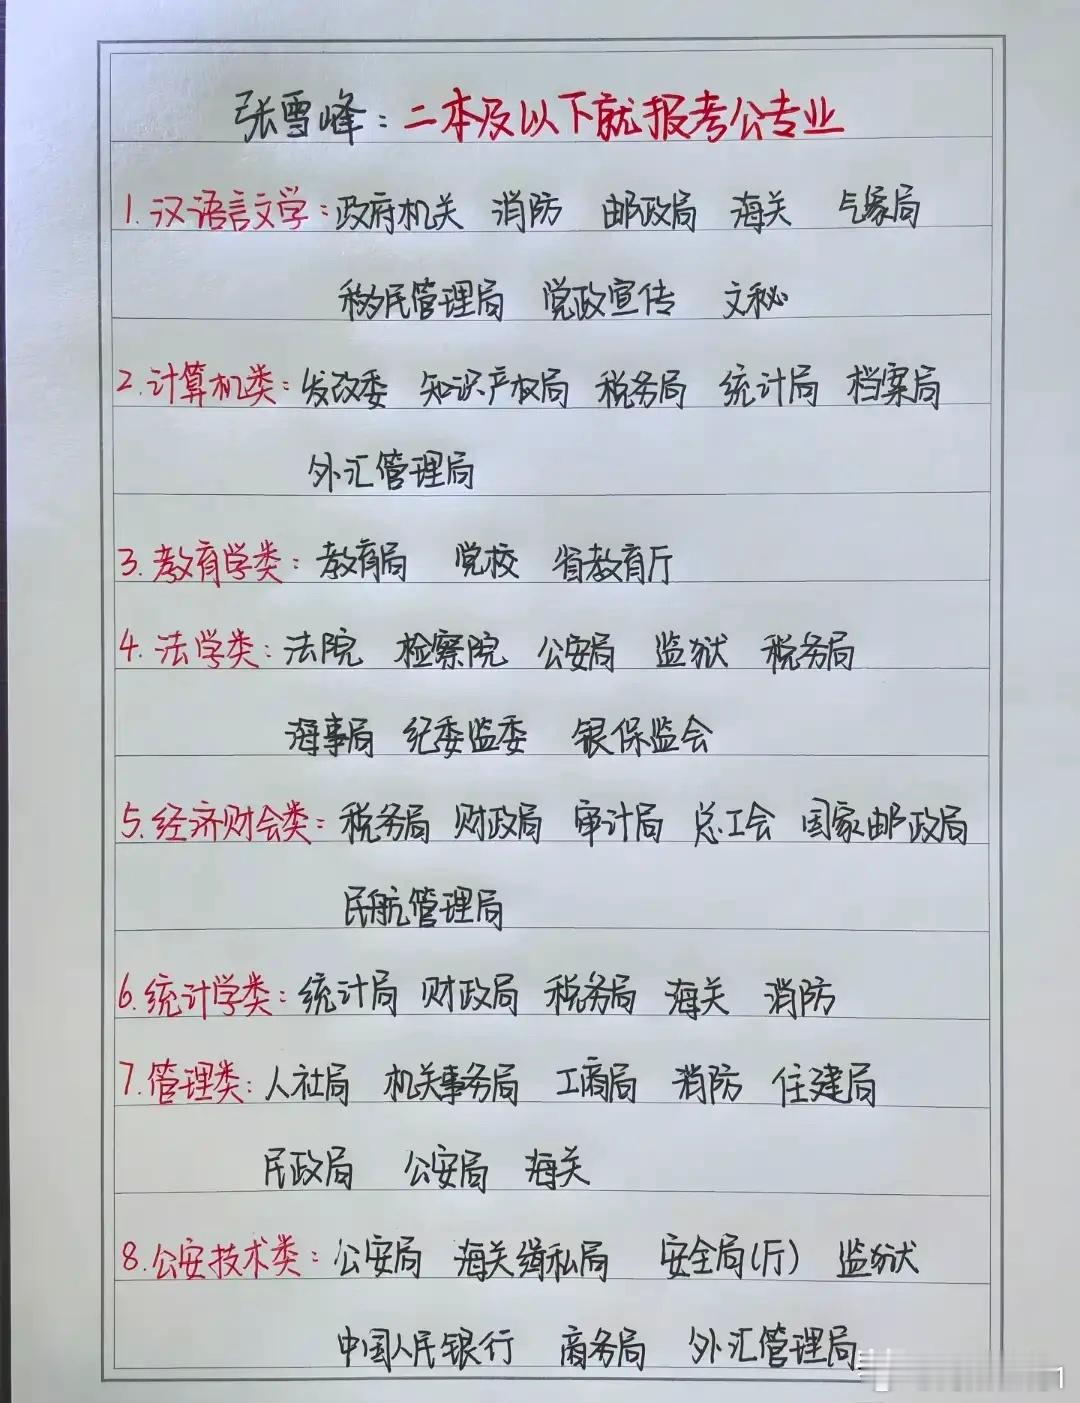 张雪峰：二本及以下就报考公专业
1.汉语言文学：政府机关 消防 邮政局 海关 气象局
移民管理局 党政宣传 文秘
2.计算机类：发改委 知识产权局 税务局 统计局 档案局
外汇管理局
3.教育学类：教育局 党校 省教育厅
4.法学类：法院 检察院 公安局 监狱 税务局
海事局 纪委监委 银保监会
5.经济财会类：税务局 财政局 审计局 总工会 国家邮政局
民航管理局
6.统计学类：统计局 财政局 税务局 海关 消防
7.管理类：人社局 机关事务局 工商局 消防 住建局
民政局 公安局 海关
8.公安技术类：公安局 海关缉私局 安全局(厅) 监狱
中国人民银行 商务局 外汇管理局